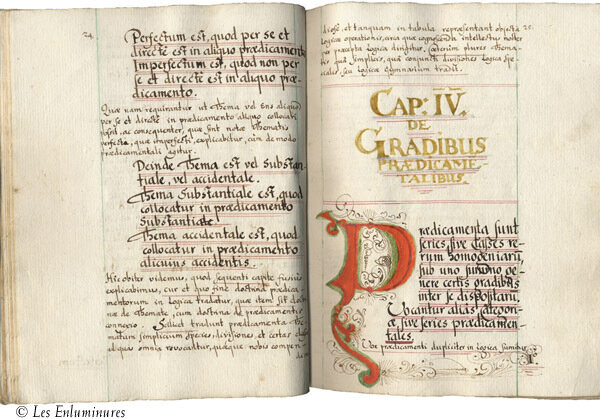 24.
Perfectum est, quod per se et
directè est in aliquo prædicamento
Imperfectum est, quod non per
se et directè est in aliquo præ-
dicamento.
Quæ nam requirantur ut Thema vel Ens aliquod
per se et directè in prædicamento aliquo collocari
possit, ac consequenter, quæ sint notæ Thematis
perfecti, quæ imperfecti, explicabitur, cùm de modo
prædicamentali agitur.
Deinde Thema est vel Substan-
tiale, vel accidentale.
Thema Substantiale est, quod
collocatur in prædicamento
Substantiæ.
Thema accidentale est, quod
collocatur in prædicamento
alicuius accidentis.
Hic obiter videmus, quod sequenti capite fusius
explicabimus, cur et quo fine doctrina prædica-
mentorum in Logica tradatur, quæ item sit doctri-
næ de Themate, cum doctrina de prædicamentis
connexio. Scilicet tradunt prædicamenta The-
matum simplicium species, divisiones, et certas classes
ad quas omnia revocantur, quæque nobis compen-
25.
diosè, et tanquam in tabula repræsentant objecta
Logicæ operationis, circa quæ cognoscenda intellectus noster
per præcepta Logica dirigitur, cæterùm plures Thema-
tis quà simplicis, quà conjuncti divisiones Logica spe-
cialis, seu Logicæ Gymnasium tradit.
CAP: IV.
DE
GRADIBUS
PRÆDICAME
TALIBUS.
Prædicamenta sunt
series, sive Classes re-
rum homogeniarũ,
sub uno summo ge-
nere certis gradibus
inter se dispositarũ.
Vocantur aliàs categori-
æ, sive series prædicamen-
tales.
Vox prædicamenti dupliciter in Logica sumitur
© Les Enluminures